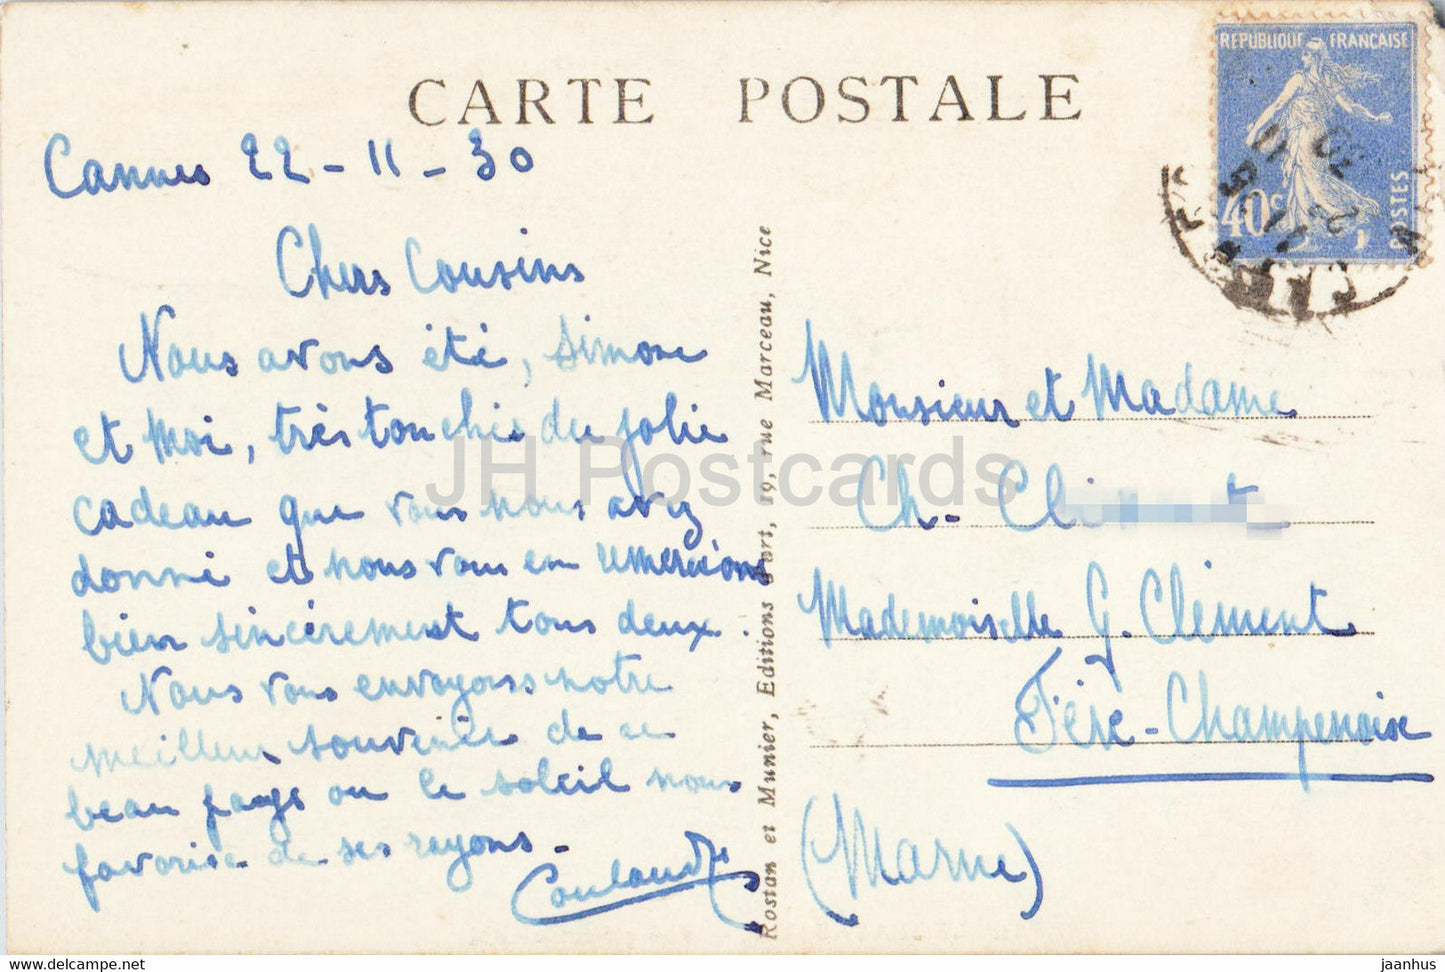 CARTE POSTALE
Cannes 22-11-30
Chers Cousins
Nous avons été, Simone
et Moi, très touchés du jolie
cadeau que vous nous avez
donné et nous vous en remercions
bien sincèrement tous deux.
Nous vous envoyons notre
meilleur souvenir de ce
beau pays ou le soleil nous
favorise de ses rayons.
Rostan et Munier, Editions d'art, 19, rue Marceau, Nice
REPUBLIQUE FRANÇAISE
40c
POSTES
Monsieur et Madame
Ch.
Mademoiselle G. Clément
Fère-Champenoise
(Marne)
JH Postcards
www.delcampe.net
jaanhus